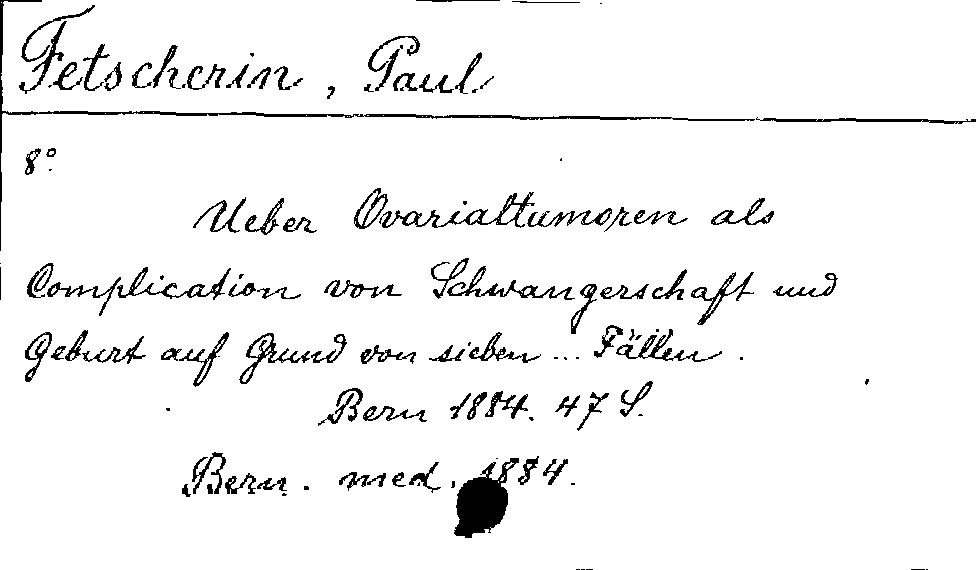 Fetscherin, Paul
8°.
Ueber Ovarialtumoren als
Complication von Schwangerschaft und
Geburt auf Grund von sieben ... Fällen.
Bern 1884. 47 S.
Bern. med. 1884.